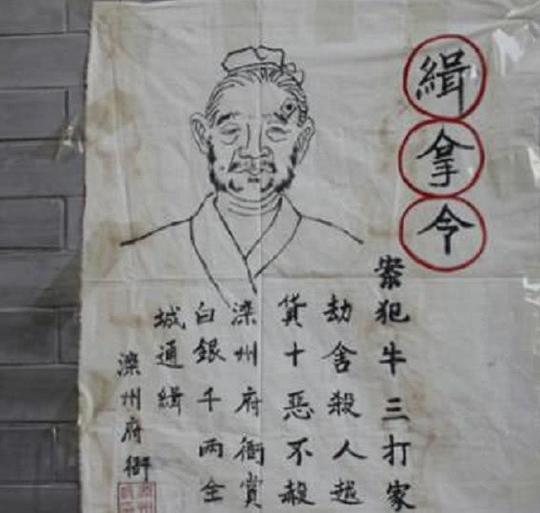 緝拿令
案犯牛三打家
劫舍殺人越
貨十惡不赦
滦州府衙賞
白銀千两全
城通緝
滦州府衙